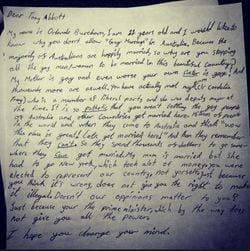 Dear Tony Abbott
My name is Orlando Burcham, I am 11 years old and I would like to
know why you don't allow "Gay Marriage" in Australia. Because the
majority of Australians are happily married, so why are you stopping
all the gay men/women to be married in this beautiful country?
My Mother is gay and even worse your own Sister is gay! And
thousands more are aswell. You have actually met my
who is a member of Liberal party and she was deputy mayor at
the time. It is so pathetic that you aren't letting the gay people
of Australia and other Countries get married here. Millions of people
in the world and others they come to Australia and think "wow
this place is great! Lets get married here!" And then they remember
that they can't! So they spend thousands of dollars to go some-
where they can get married. My mum is married but she
had to go to New york, which cost alot of money. you were
elected to represent our country, not yourself just because
you think it's wrong, does not give you the right to make
it illegal. Doesn't our oppinions matter to you?
Just because your the prime minister, which by the way does
not give you all the powers.
I hope you change your mind.